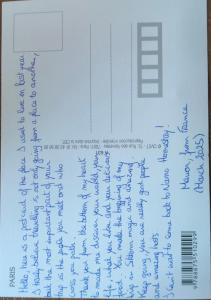 Hello, here is a postcard of the place I used to live on last year.
I really believe travelling is not only going from a place to another,
but the most important part of your
trip is the path you met and who
cross you path.
Thank you from the bottom of my heart
to make me discover your world, your
life, what you like and your delicious
food. You made the beginning of my
trip a silver magic and amazing.
Keep going you are really good people
and amazing hosts
I can't wait to come back to Namo Homestay!
Manon, from France
(March 2025)
PARIS